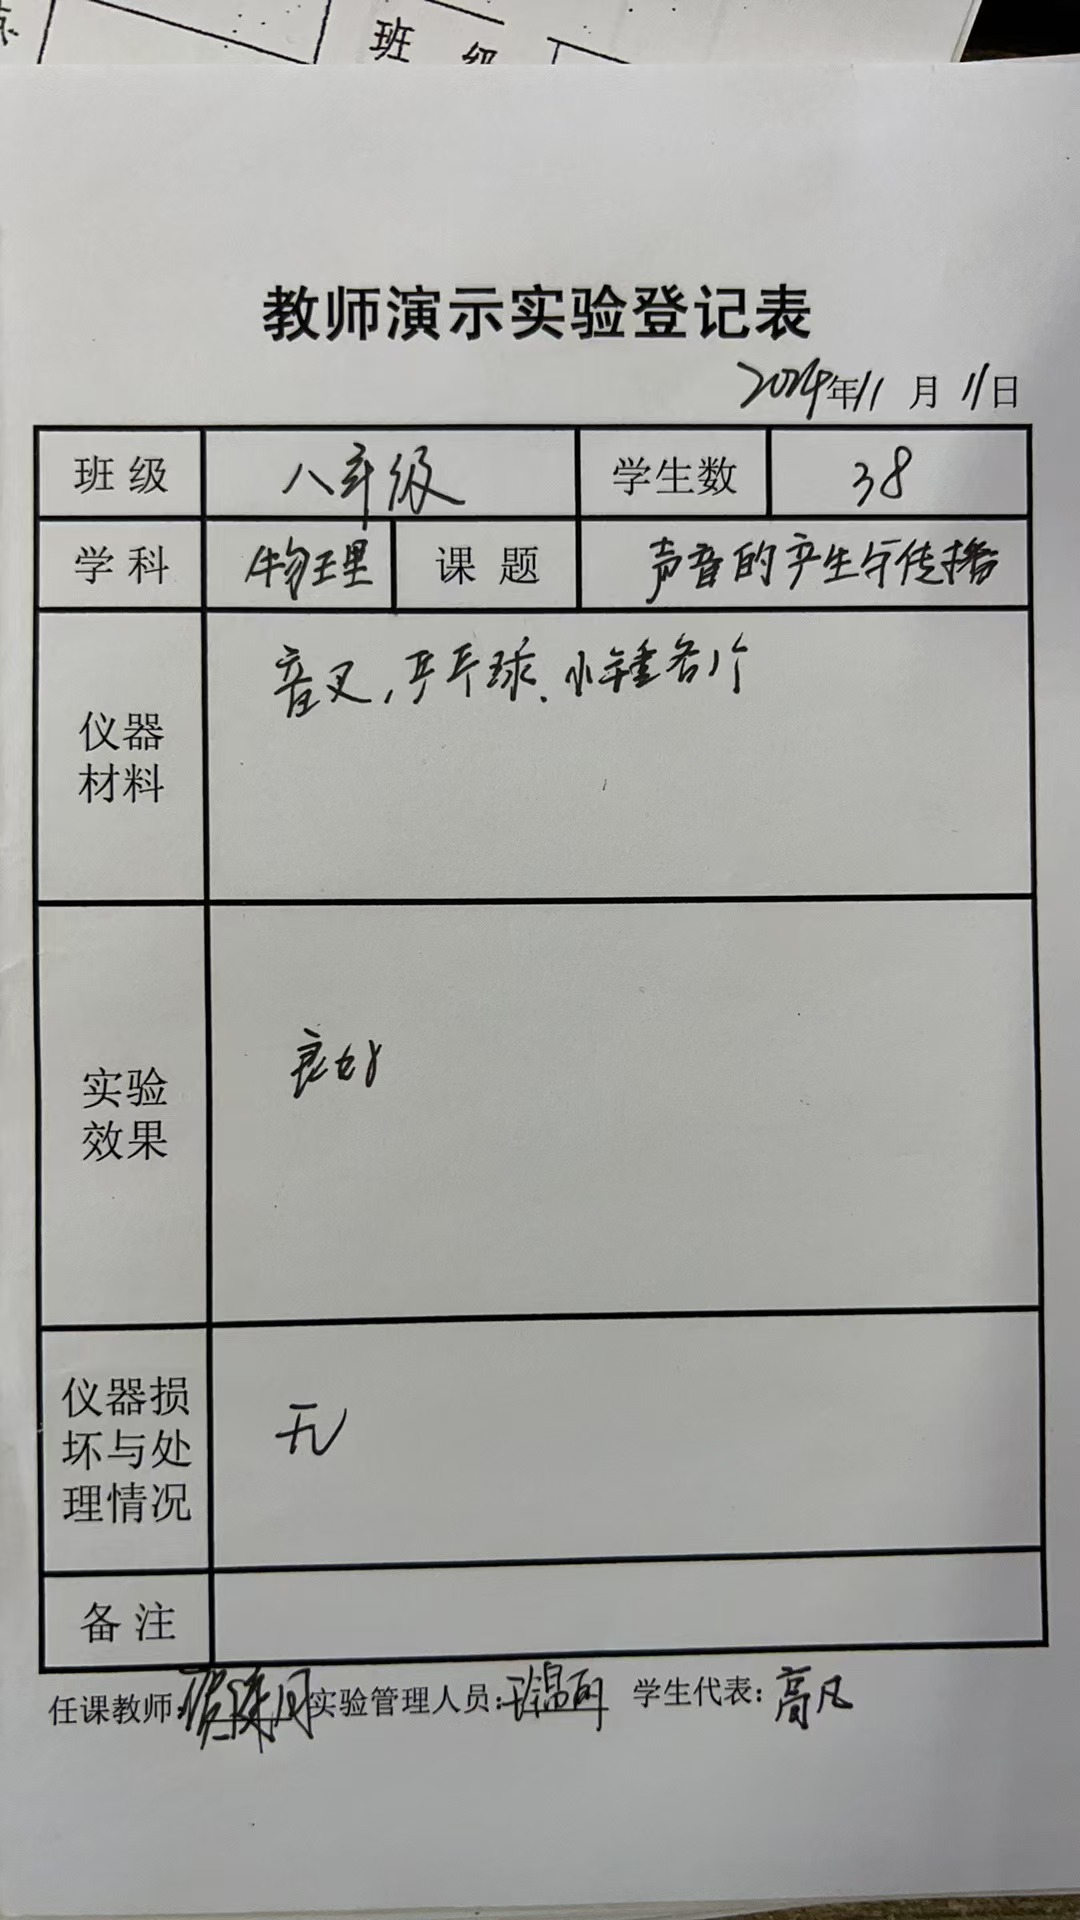 班 级
教师演示实验登记表
2024年11月11日
班级 八年级 学生数 38
学科 物理 课题 声音的产生与传播
仪器材料 音叉，乒乓球、小锤各1个
实验效果 良好
仪器损坏与处理情况 无
备注
任课教师: 实验管理人员: 学生代表: 高凡